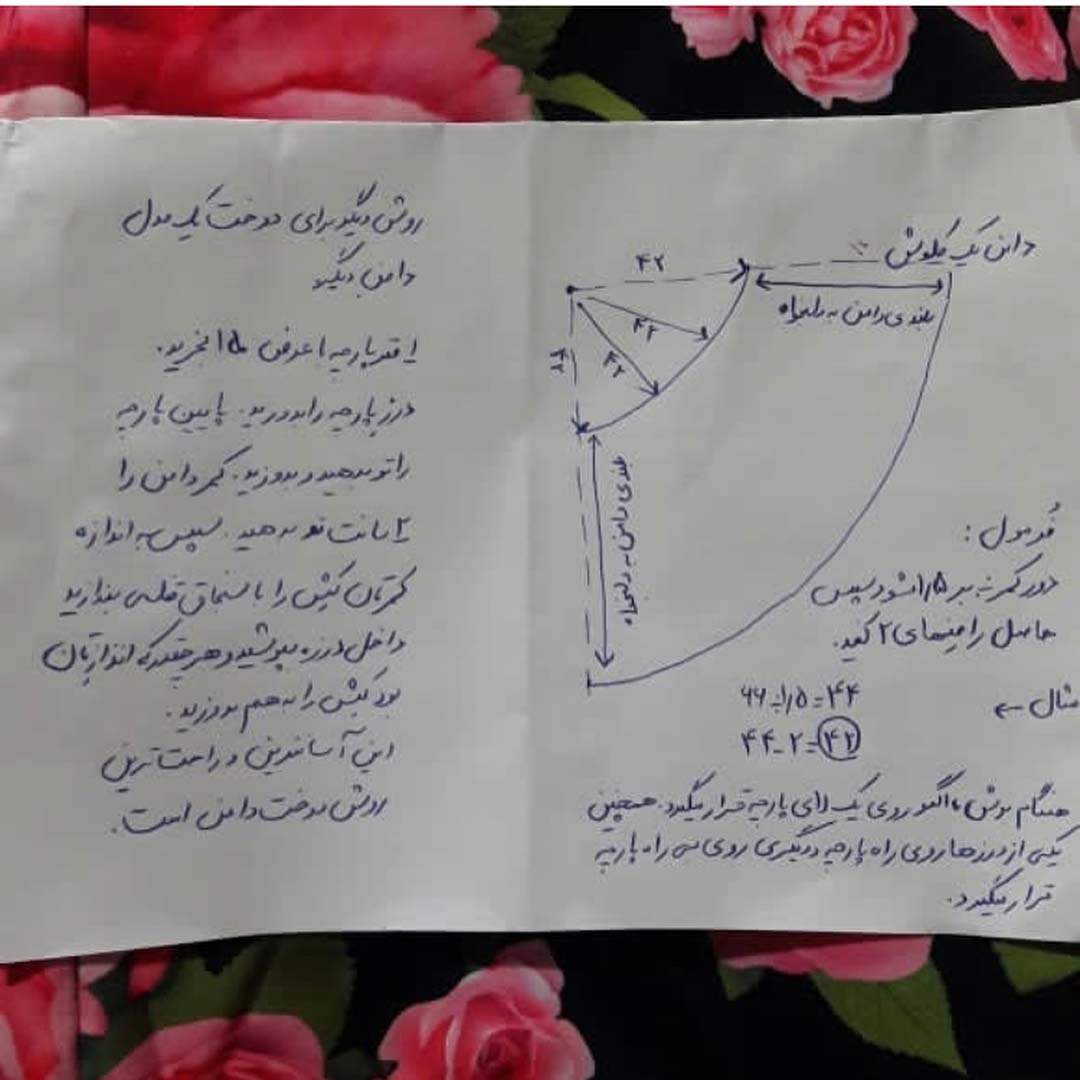 دامن یک کلوش
۴۲
بلندی دامن به دلخواه
۴۲
۴۲
۴۲
بلندی دامن به دلخواه
فرمول :
دور کمر ÷ بر ۱/۵ شود سپس
حاصل را منهای ۲ کنید.
مثال ←
۶۶÷۱/۵=۴۴
۴۴-۲=۴۲
هنگام برش، الگو روی یک لای پارچه قرار میگیرد. همچنین
یکی از درزها روی راه پارچه و دیگری روی بی راه پارچه
قرار میگیرد.
روش دیگر برای دوخت یک مدل
دامن دیگر
۱ قد پارچه با عرض ۱۵۰ بخرید.
درز پارچه را بدوزید. پایین پارچه
را تو بدهید و بدوزید. کمر دامن را
۲ سانت تو بدهید. سپس به اندازه
کمرتان کش را با سنجاق قفلی بندازید
داخل درزه بپوشید و هر چقدر که اندازتان
بود کش را به هم بدوزید.
این آسانترین و راحت ترین
روش دوخت دامن است.